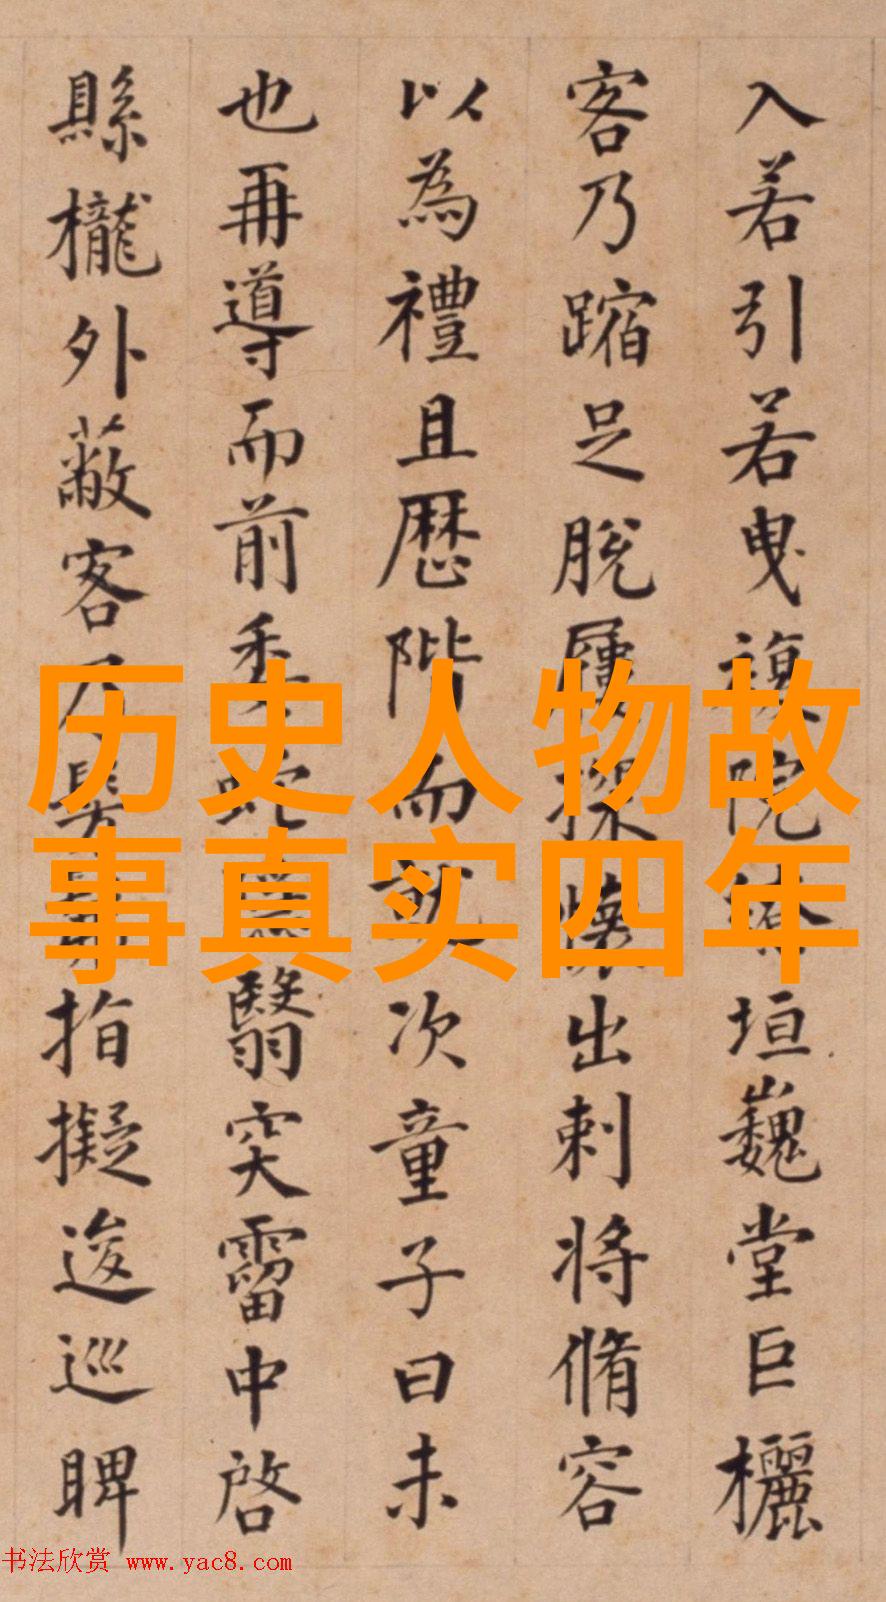 入若引若曳複院繚垣巍堂巨欐
客乃蹜足脫屨探懷出刺將脩容
以為禮且歷階而就次童子曰未
也再導而前委蛇翳突霤中啓
縣櫳外蔽客乃指擬逡巡睥
历史人物故
事真实四年
书法欣赏 www.yac8.com